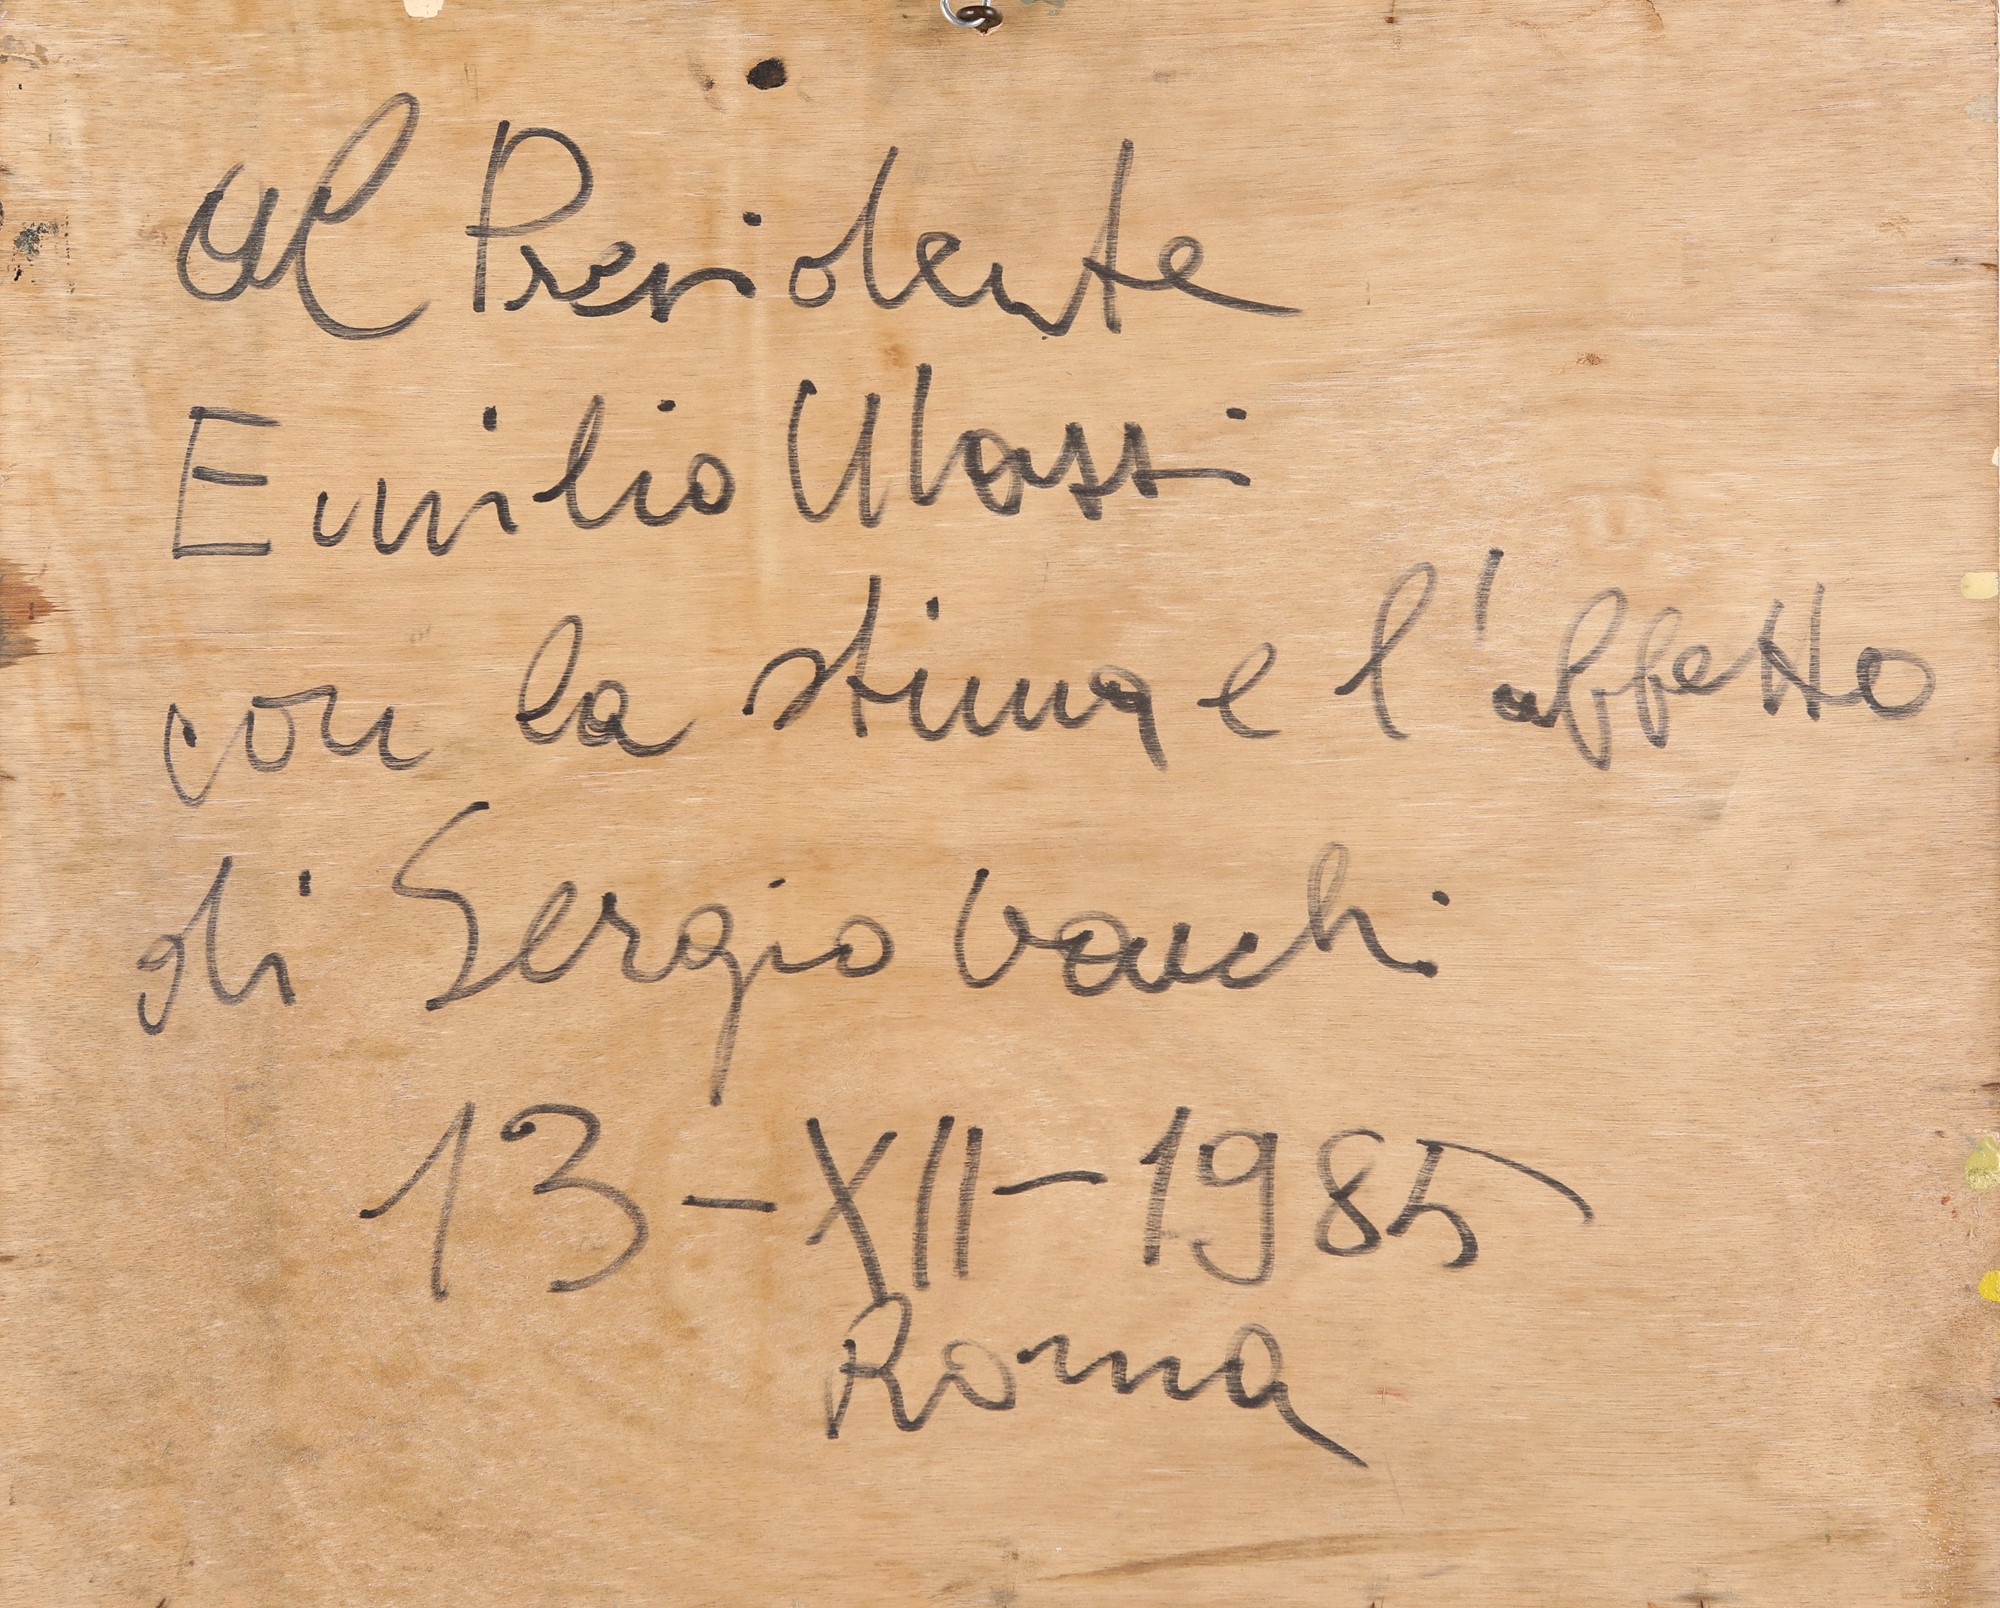 al Presidente
Emilio Massi
con la stima e l'affetto
di Sergio Vacchi
13-XII-1985
Roma